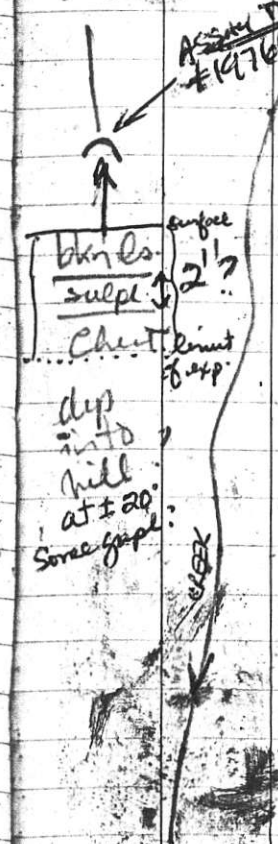 Assay T
#1976
surface
bkn ls.
2"?
sulph
Chert
limit
of exp.
dip
into
hill
at ± 20°
Some graph?
CREEK